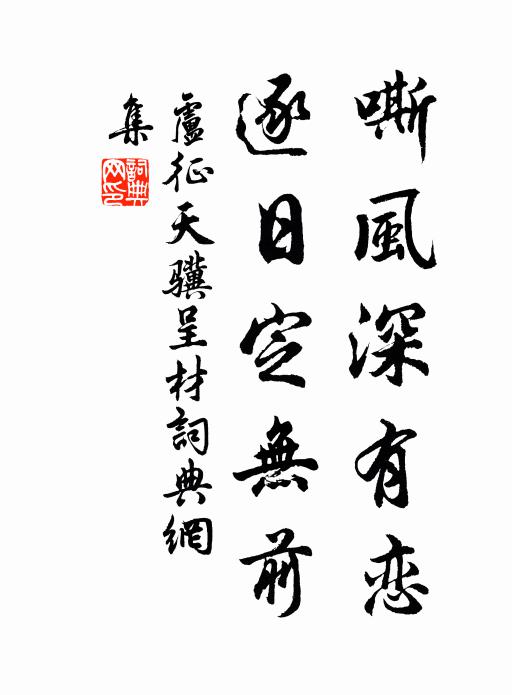 嘶風深有恋
逐日定無前
盧征天驥呈材詞典網
集
詞典網印